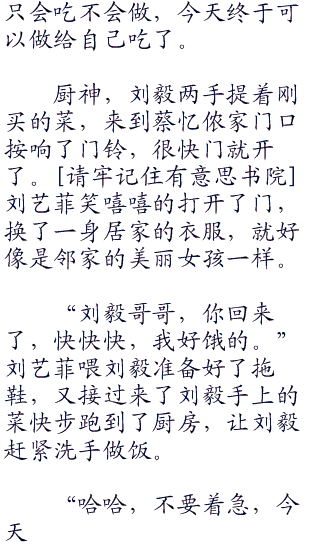 只会吃不会做，今天终于可
以做给自己吃了。
厨神，刘毅两手提着刚
买的菜，来到蔡忆侬家门口
按响了门铃，很快门就开
了。[请牢记住有意思书院]
刘艺菲笑嘻嘻的打开了门，
换了一身居家的衣服，就好
像是邻家的美丽女孩一样。
“刘毅哥哥，你回来
了，快快快，我好饿的。”
刘艺菲喂刘毅准备好了拖
鞋，又接过来了刘毅手上的
菜快步跑到了厨房，让刘毅
赶紧洗手做饭。
“哈哈，不要着急，今
天